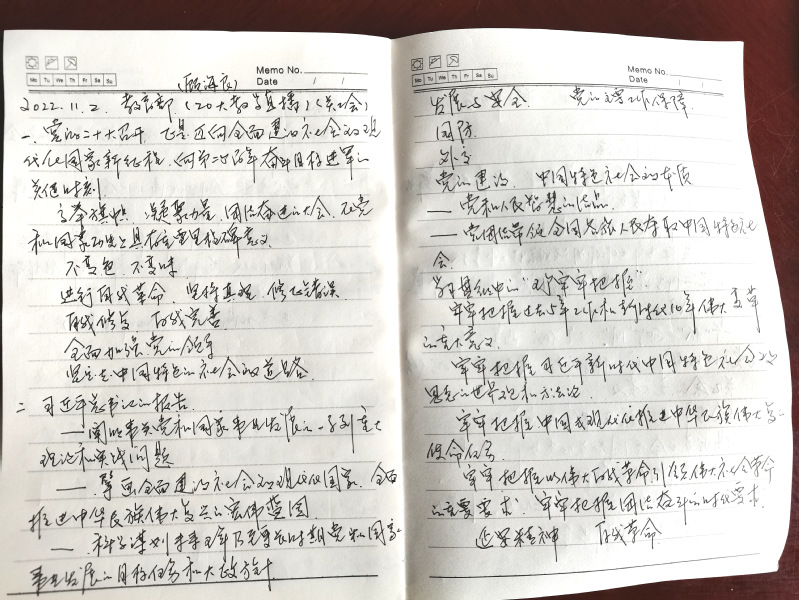 Memo No.
Mo Tu We Th Fr Sa Su
Date / /
(顾海良)
2022.11.2. 教育部（20大教学直播）（关工会）
一、党的二十大召开，是迈向全面建设社会主义现
代化国家新征程，向第二个百年奋斗目标进军的
关键时刻
高举旗帜、凝聚力量、团结奋进的大会，在党
和国家历史上具有重要里程碑意义
不变色、不变味
进行自我革命，坚持真理，修正错误
自我修复 自我完善
全面加强党的领导
坚定走中国特色的社会主义道路
二 习近平总书记的报告
—阐明事关党和国家事业发展的一系列重大
理论和实践问题
— 擘画全面建设社会主义现代化国家、全面
推进中华民族伟大复兴的宏伟蓝图
— 科学谋划未来五年乃至更长时期党和国家
事业发展的目标任务和大政方针
Memo No.
Mo Tu We Th Fr Sa Su
Date / /
发展与安全 党的主要工作保障
国防
外交
党的建设 中国特色社会主义本质
— 党和人民智慧的结晶
— 党团结带领全国各族人民夺取中国特色社
会
学习贯彻中的“五个牢牢把握”
牢牢把握过去5年工作和新时代10年伟大变革
的重大意义
牢牢把握习近平新时代中国特色社会主义
思想的世界观和方法论
牢牢把握中国式现代化推进中华民族伟大复兴
使命任务
牢牢把握以伟大自我革命引领伟大社会革命
的重要要求 牢牢把握团结奋斗的时代要求
延安精神 自我革命